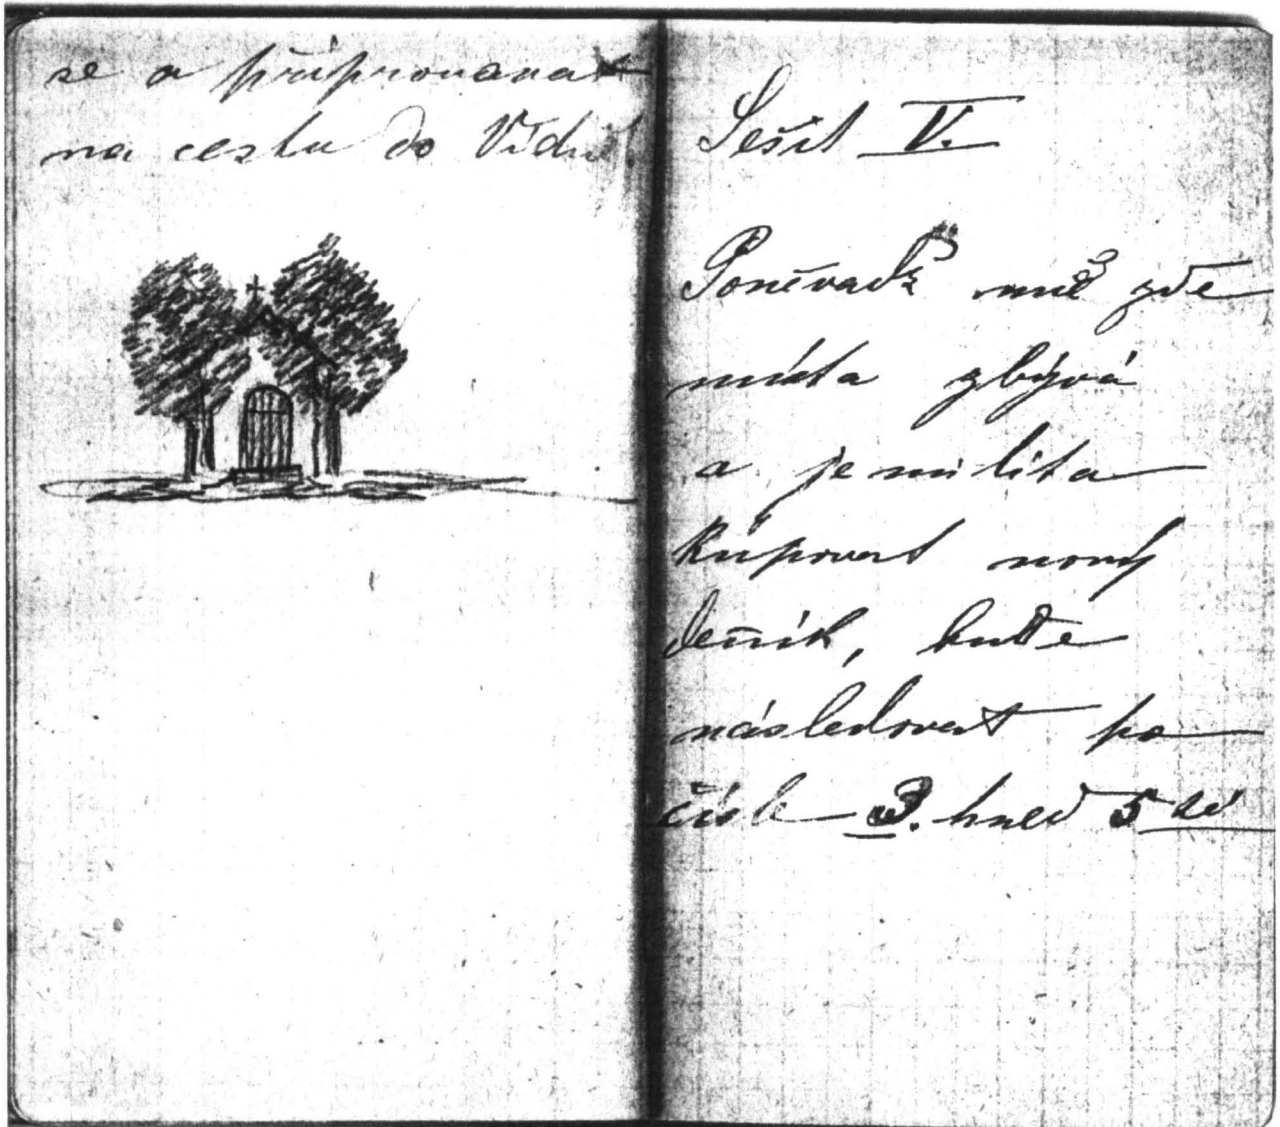 se a připravovat
na cestu do Vídně.
Sešit V.
Poněvadž mně zde
místa zbývá
a je mi líto
kupovat nový
deník, bude
následovat po
čísle 3. hned 5 té